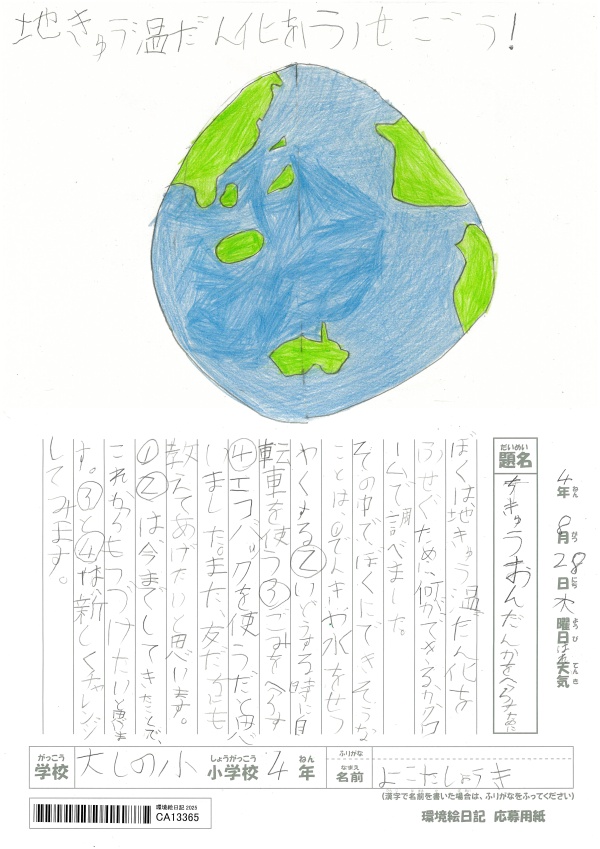 地きゅう温だん化をふせごう!
4年ねん 8月がつ 28日にち 木曜日ようび はれ天気てんき
だいめい
題名
ちきゅうおんだんかをへらすために
ぼくは地きゅう温だん化を
ふせぐために何ができるかグロ
ームで調べました。
その中でぼくにできそうな
ことは①でんきや水をせつ
やくする②いどうする時に自
転車を使う③ごみをへらす
④エコバックを使うだと思べ
いました。また、友だちにも
教えてあげたいと思べいます。
①②は、今までしてきたことで、
これからもつづけたいと思べま
す。③と④は、新しくチャレンジ
してみます。
がっこう
学校
大しの小
しょうがっこう
小学校
4
ねん
年
ふりがな
なまえ
名前
よこたしょうき
(漢字で名前を書いた場合は、ふりがなをふってください)
環境絵日記 2025
CA13365
環境絵日記 応募用紙